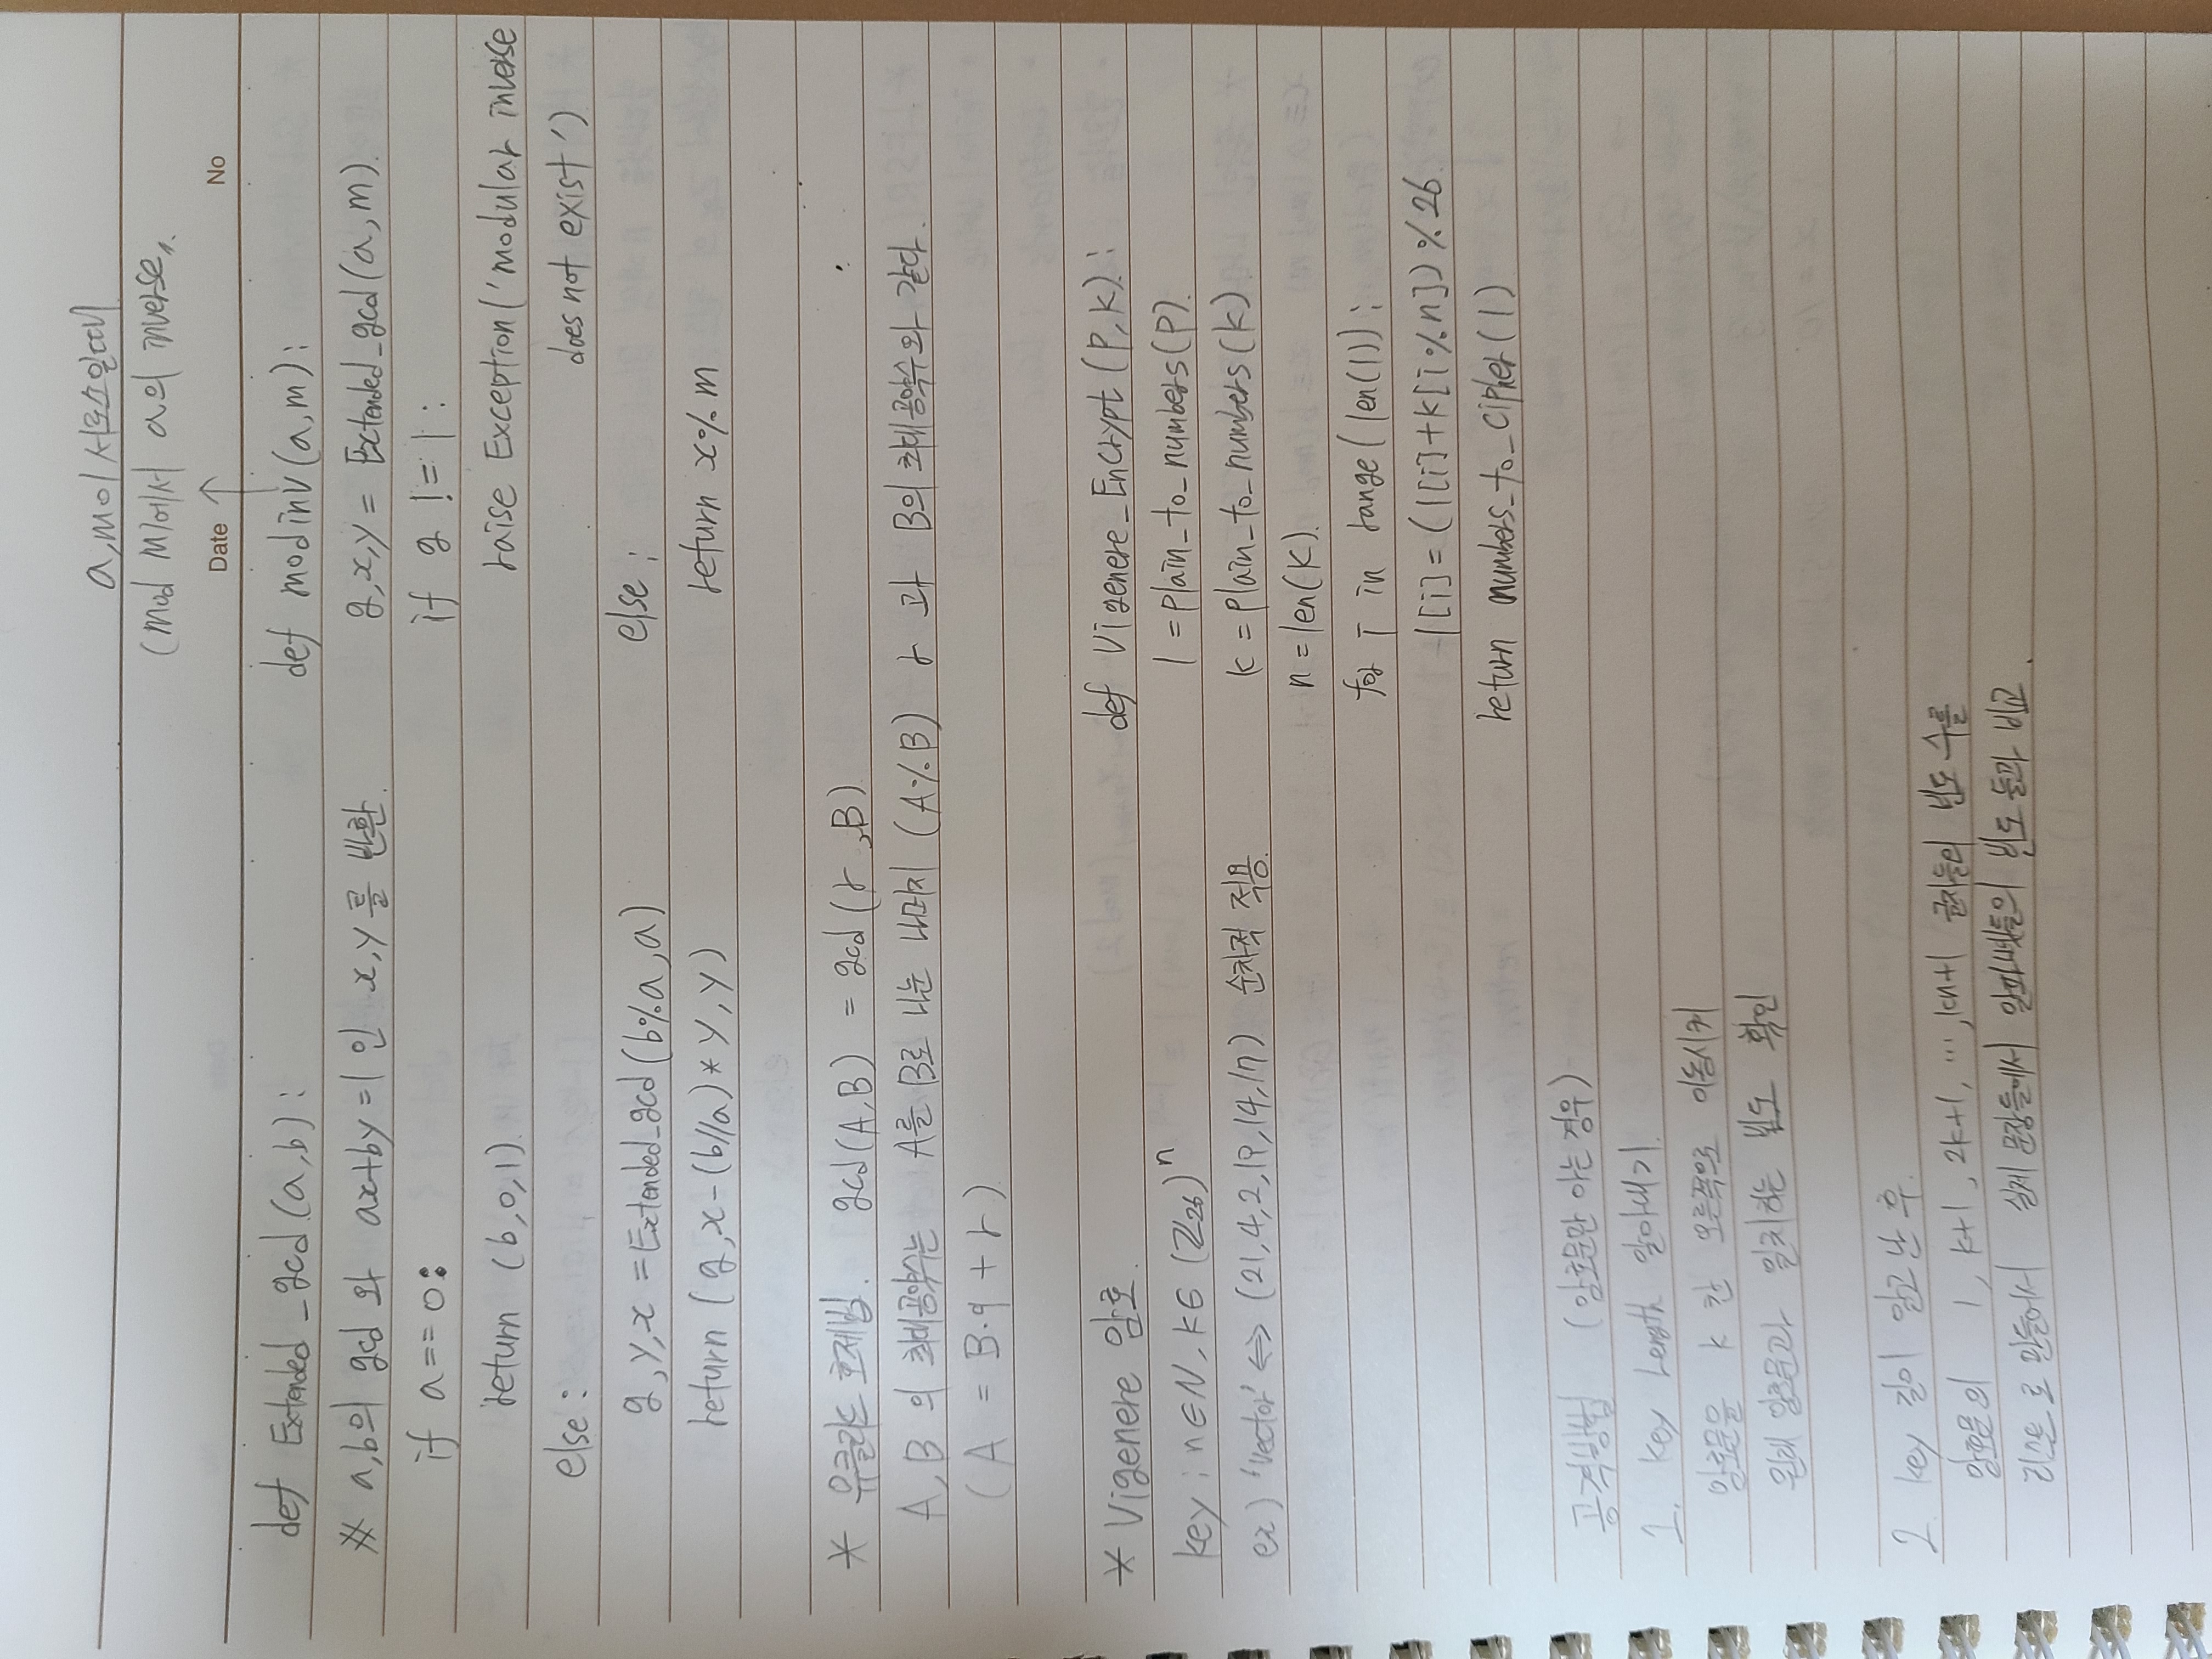 a,m이 서로소일때
(mod m)에서 a의 inverse.
Date
No
def Extended_gcd(a,b):
# a,b의 gcd 와 ax+by=1 인 x,y를 반환.
if a==0:
return (b,0,1).
else:
g,y,x = Extended_gcd(b%a,a)
return (g,x-(b//a)*y,y)
def modinv(a,m):
g,x,y = Extended_gcd(a,m).
if g != 1:
raise Exception('modular inverse
does not exist')
else:
return x%m
* 유클리드 호제법. gcd(A,B) = gcd(r,B)
A,B의 최대공약수는 A를 B로 나눈 나머지 (A%B) r 과 B의 최대공약수와 같다.
(A = B·q + r)
* Vigenere 암호.
key : n∈N, k∈(Z₂₆)ⁿ
ex) 'vector' ⇔ (21,4,2,19,14,17) 순차적 적용.
def Vigenere_Encrypt(P,K):
l = plain_to_numbers(P).
k = plain_to_numbers(k)
n = len(k).
for i in range(len(l)):
l[i] = (l[i]+k[i%n])%26
return numbers_to_cipher(l)
공격방법 (암호문만 아는 경우)
1. key Length 알아내기.
암호문을 k 칸 오른쪽으로 이동시켜
원래 암호문과 일치하는 빈도 확인
2. key 길이 알고 난 후.
암호문의 1, k+1, 2k+1, ..., kn+1 글자들의 빈도 수를
리스트로 만들어서 실제 문장들에서 알파벳들의 빈도 들과 비교.